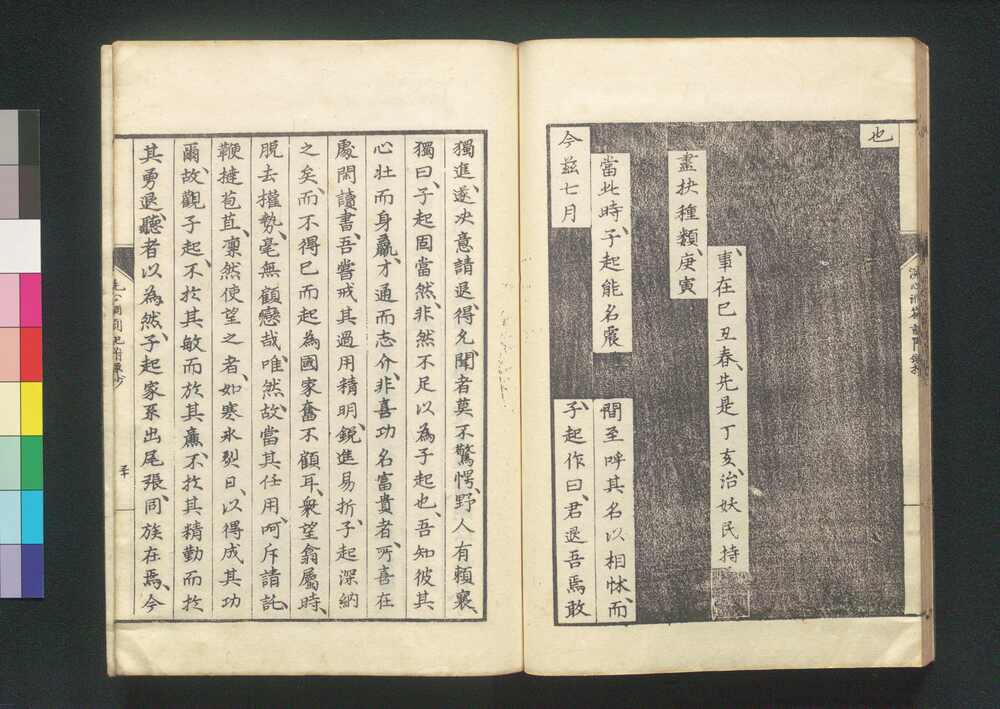 也
事在巳丑春、先是丁亥、治妖民持
盡抉種類、庚寅
當此時、子起能名震
間至呼其名以相怵、而
今茲七月
子起作曰、君退吾焉敢
獨進、遂决意請退、得允、聞者莫不驚愕、野人有頼襄、
獨曰、子起固當然、非然不足以為子起也、吾知彼其
心壮而身羸、才通而志介、非喜功名富貴者、所喜在
處閑讀書、吾嘗戒其過用精明、鋭進易折、子起深納
之矣、而不得已而起為國家奮不顧耳、衆望翕屬時、
脱去權勢、毫無顧戀哉、唯然、故當其任用、呵斥請託、
鞭撻苞苴、凛然使望之者、如寒氷烈日、以得成其功
爾、故觀子起、不於其敏而於其廉、不於其精勤而於
其勇退、聽者以為然、子起家系出尾張、同族在焉、今